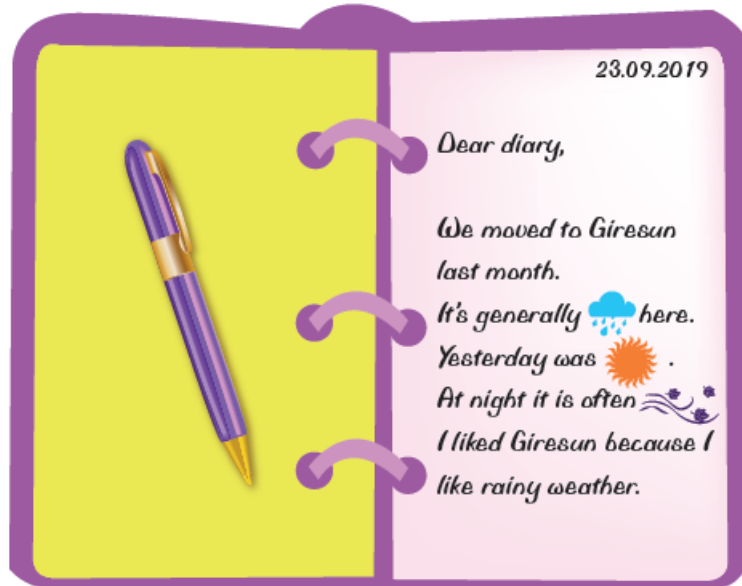 23.09.2019
Dear diary,
We moved to Giresun
last month.
It's generally here.
Yesterday was .
At night it is often
I liked Giresun because I
like rainy weather.